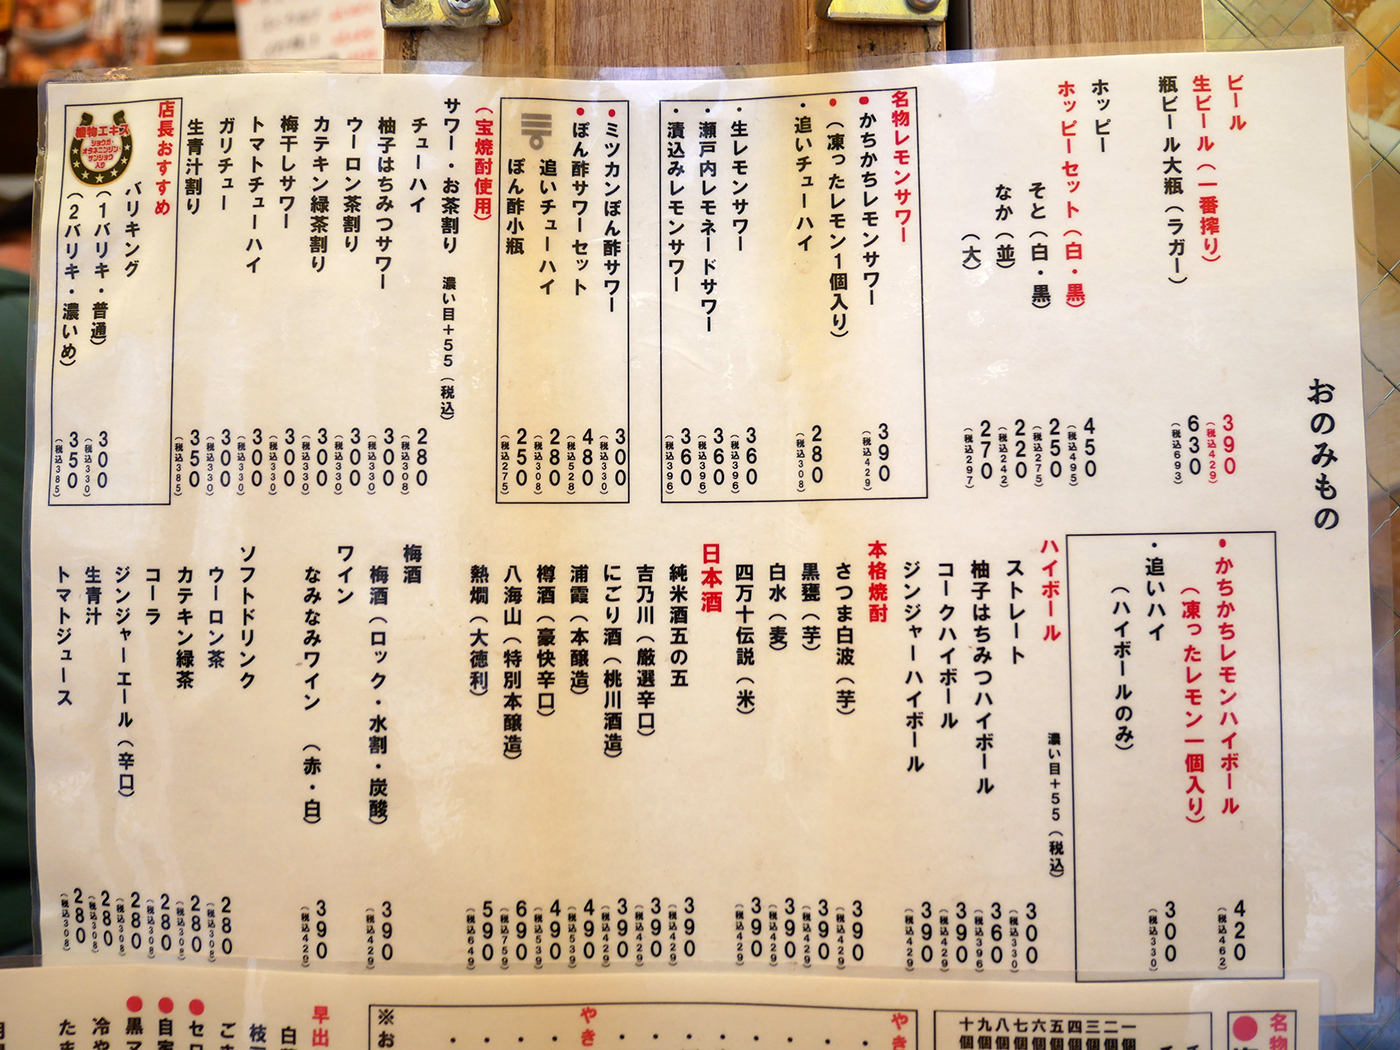 おのみもの
ビール
生ビール（一番搾り） 390 （税込429）
瓶ビール大瓶（ラガー） 630 （税込693）
ホッピー
ホッピーセット（白・黒） 450 （税込495）
そと（白・黒） 250 （税込275）
なか（並） 220 （税込242）
（大） 270 （税込297）
名物レモンサワー
・かちかちレモンサワー 390 （税込429）
・（凍ったレモン1個入り）
・追いチューハイ 280 （税込308）
・生レモンサワー 360 （税込396）
・瀬戸内レモネードサワー 360 （税込396）
・漬込みレモンサワー 360 （税込396）
・ミツカンぽん酢サワー 300 （税込330）
・ぽん酢サワーセット 480 （税込528）
追いチューハイ 280 （税込308）
ぽん酢小瓶 250 （税込275）
（宝焼酎使用）
サワー・お茶割り 濃い目＋55（税込）
チューハイ 280 （税込308）
柚子はちみつサワー 300 （税込330）
ウーロン茶割り 300 （税込330）
カテキン緑茶割り 300 （税込330）
梅干しサワー 300 （税込330）
トマトチューハイ 300 （税込330）
ガリチュー 300 （税込330）
生青汁割り 350 （税込385）
店長おすすめ
植物エキス
ショウガ・
オタネニンジン・
サンショウ
入り
バリキング
（1バリキ・普通） 300 （税込330）
（2バリキ・濃いめ） 350 （税込385）
・かちかちレモンハイボール 420 （税込462）
（凍ったレモン一個入り）
・追いハイ 300 （税込330）
（ハイボールのみ）
ハイボール 濃い目＋55（税込）
ストレート 300 （税込330）
柚子はちみつハイボール 360 （税込396）
コークハイボール 390 （税込429）
ジンジャーハイボール 390 （税込429）
本格焼酎
さつま白波（芋） 390 （税込429）
黒甕（芋） 390 （税込429）
白水（麦） 390 （税込429）
四万十伝説（米） 390 （税込429）
日本酒
純米酒五の五 390 （税込429）
吉乃川（厳選辛口） 390 （税込429）
にごり酒（桃川酒造） 390 （税込429）
浦霞（本醸造） 490 （税込539）
樽酒（豪快辛口） 490 （税込539）
八海山（特別本醸造） 690 （税込759）
熱燗（大徳利） 590 （税込649）
梅酒
梅酒（ロック・水割・炭酸） 390 （税込429）
ワイン
なみなみワイン （赤・白） 390 （税込429）
ソフトドリンク
ウーロン茶 280 （税込308）
カテキン緑茶 280 （税込308）
コーラ 280 （税込308）
ジンジャーエール（辛口） 280 （税込308）
生青汁 280 （税込308）
トマトジュース 280 （税込308）
名物
一個
二個
三個
四個
五個
六個
七個
八個
九個
十個
やき
やき
※お
早出
白
枝
ご
セロ
自家
黒マ
冷や
たま